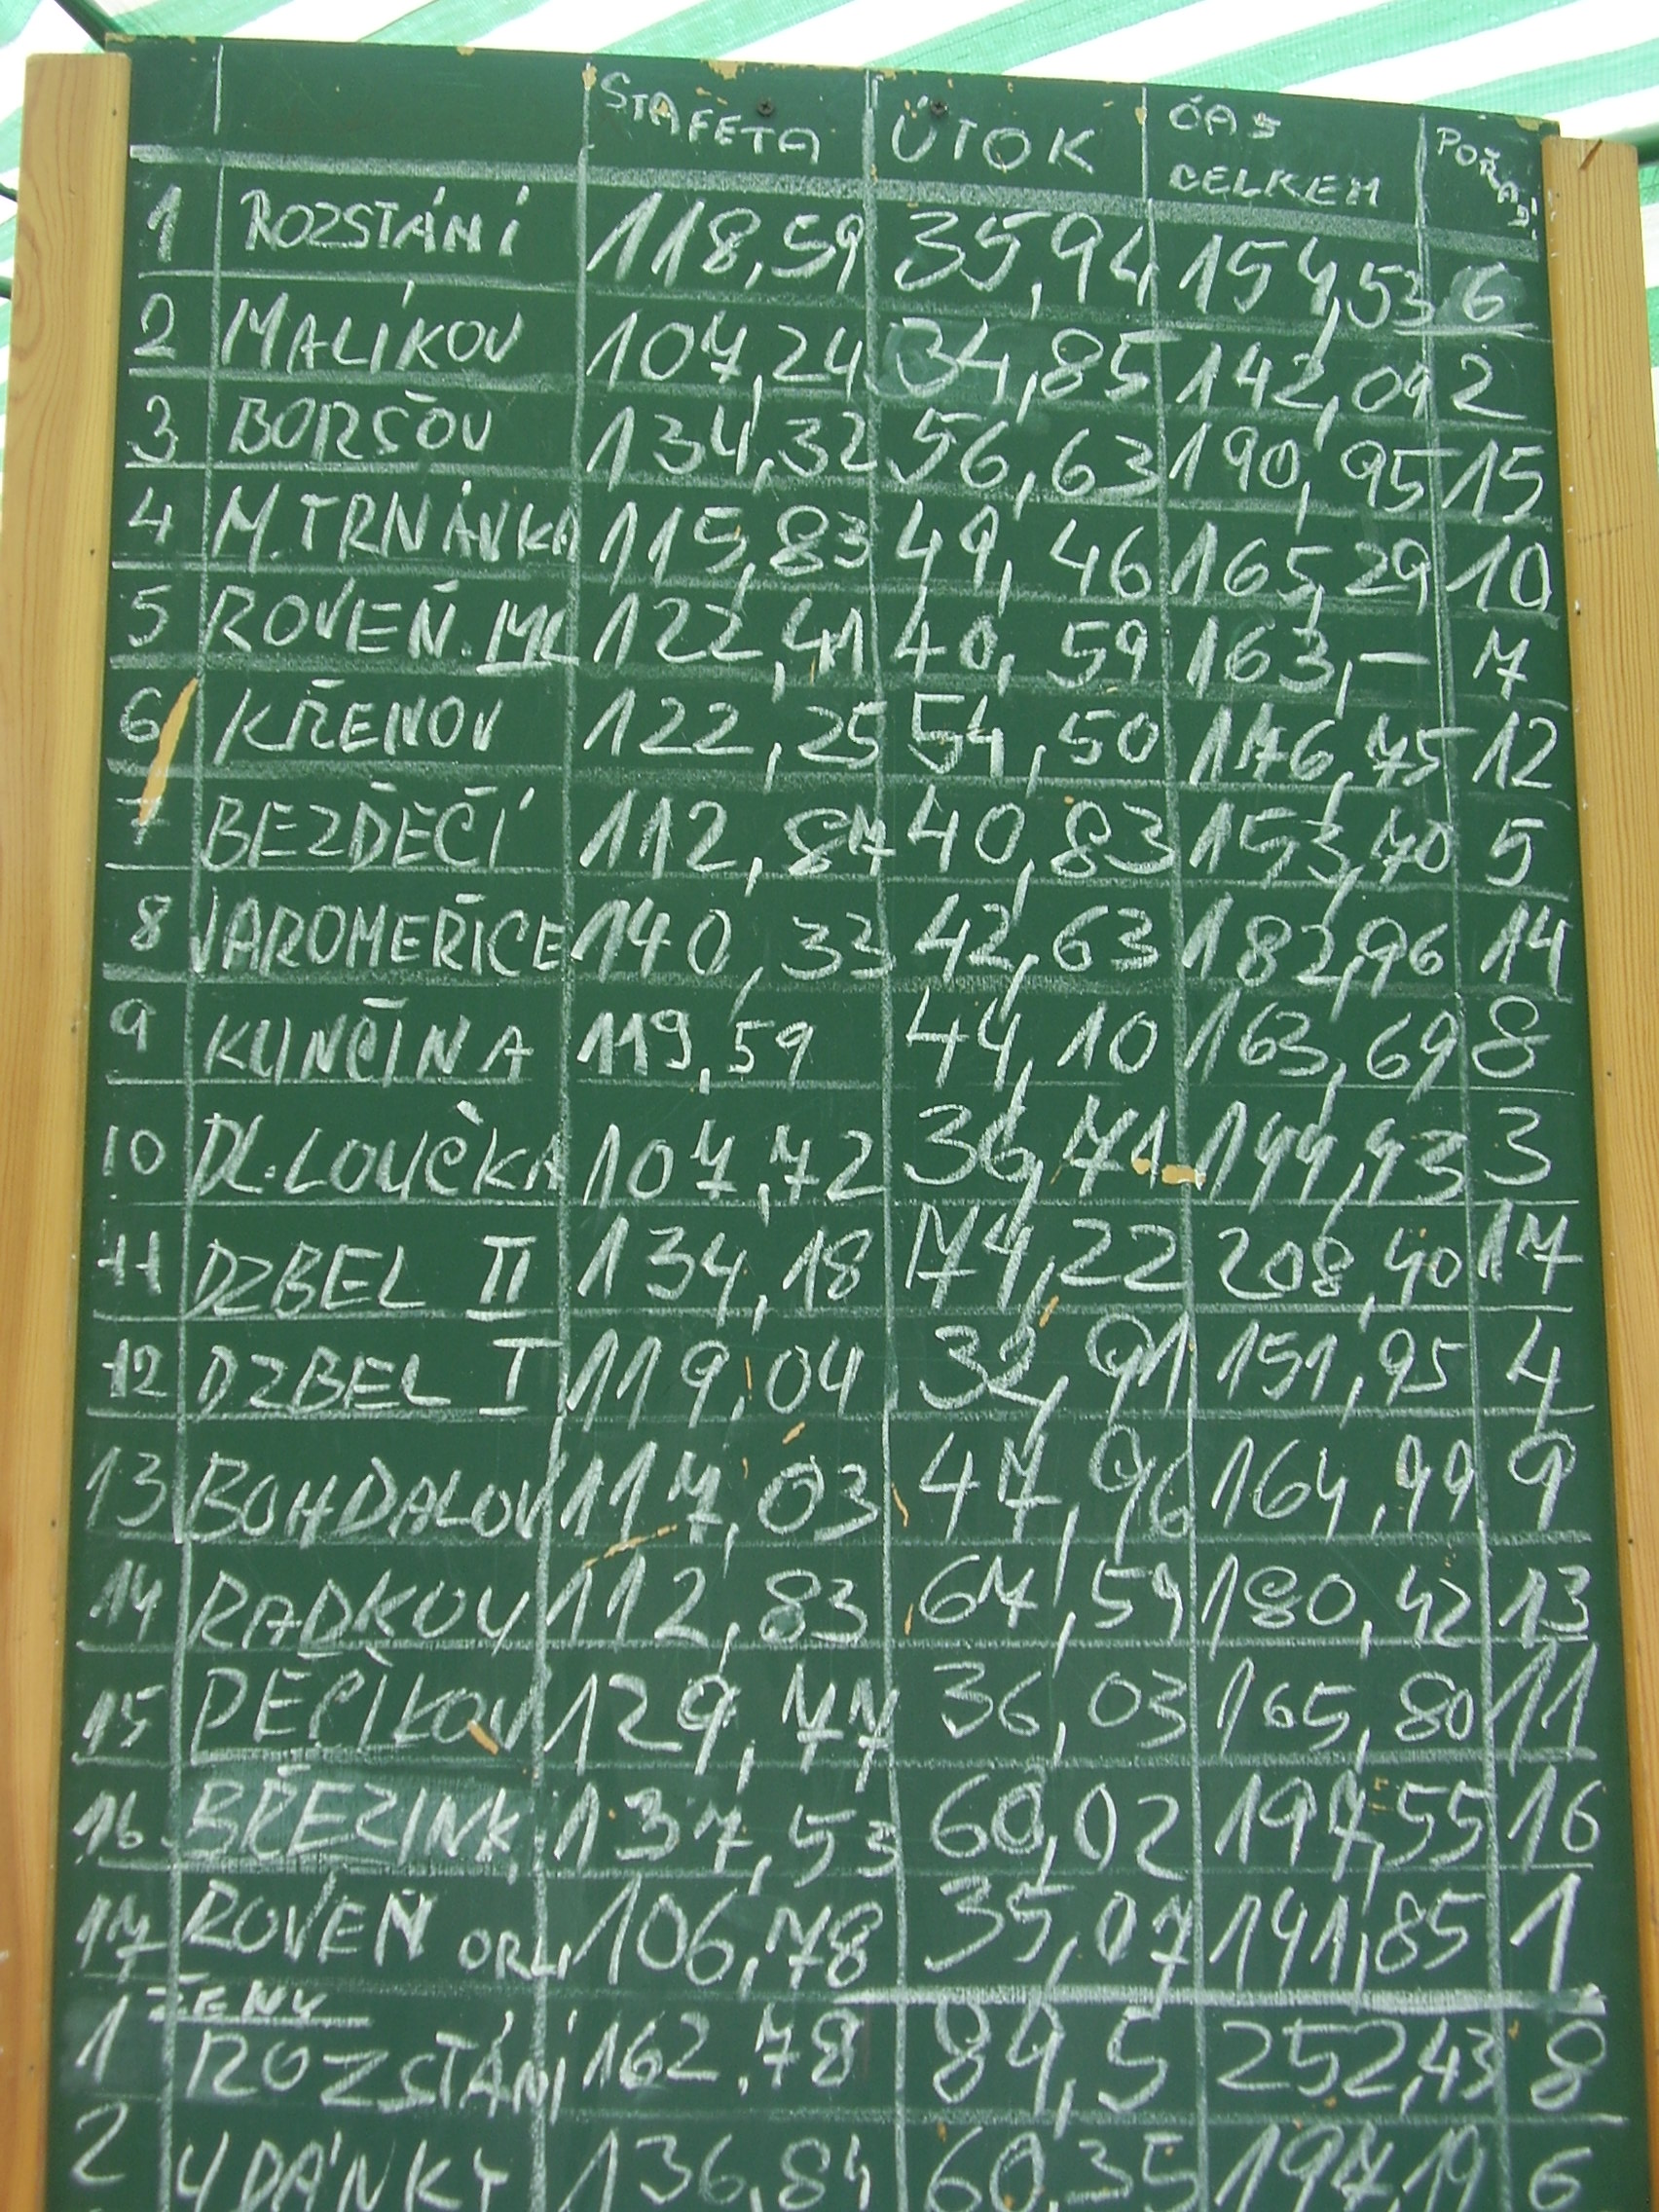 STAFETA ÚTOK ČAS CELKEM POŘADÍ
1 ROZSTÁNÍ 118,59 35,94 154,53 6
2 MALÍKOV 107,24 34,85 142,09 2
3 BORŠOV 134,32 56,63 190,95 15
4 M.TRNÁVKA 115,83 49,46 165,29 10
5 ROVEŇ. ML 122,41 40,59 163,- 7
6 KŘENOV 122,25 54,50 176,75 12
7 BEZDĚČÍ 112,87 40,83 153,70 5
8 JAROMEŘICE 140,33 42,63 182,96 14
9 KUNČINA 119,59 44,10 163,69 8
10 DL.LOUČKA 107,72 36,71 144,43 3
11 DZBEL II 134,18 74,22 208,40 17
12 DZBEL I 119,04 32,91 151,95 4
13 BOHDALOV 117,03 47,96 164,99 9
14 RADKOV 112,83 67,59 180,42 13
15 PĚČÍKOV 129,77 36,03 165,80 11
16 BŘEZINK. 137,53 60,02 197,55 16
17 ROVEŇ ORL. 106,78 35,07 141,85 1
ŽENY
1 ROZSTÁNÍ 162,78 89,5 252,43 8
2 UDÁNKY 136,84 60,35 197,19 6